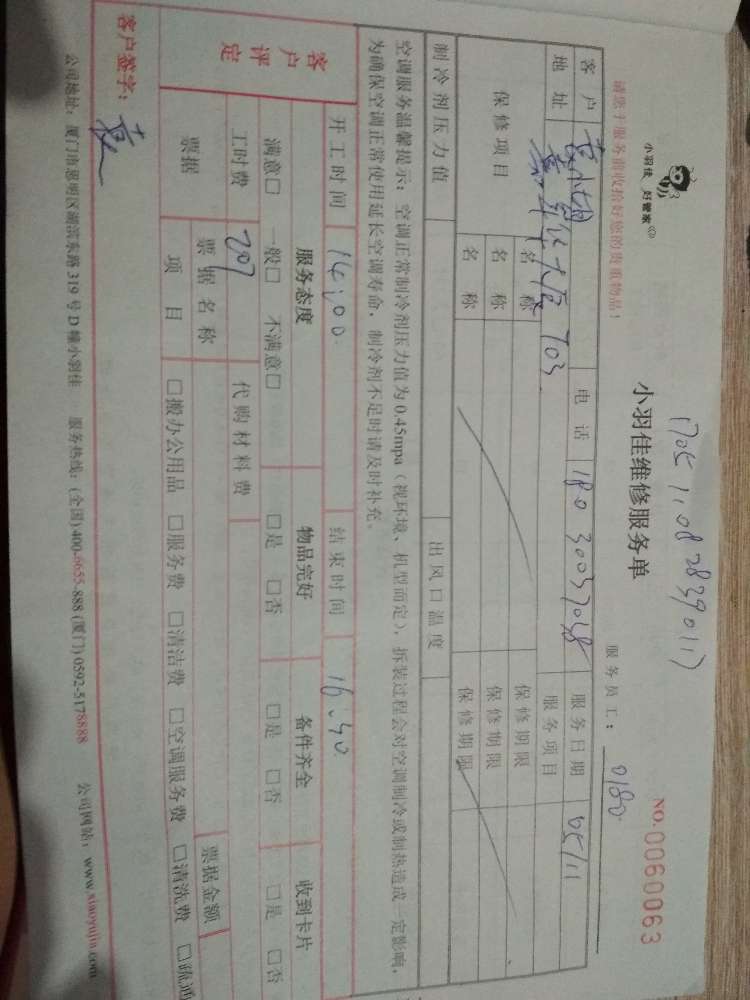 小羽佳 好管家
请您于服务前收拾好您的贵重物品！
小羽佳维修服务单
服务员工： 0180
NO. 0060063
客户 电话 服务日期 05/11
地址 703 服务项目
保修项目 名称 保修期限
名称 保修期限
名称 保修期限
制冷剂压力值 出风口温度
空调服务温馨提示：空调正常制冷剂压力值为0.45mpa（视环境、机型而定），拆装过程会对空调制冷或制热造成一定影响，
为确保空调正常使用延长空调寿命，制冷剂不足时请及时补充。
开工时间 14:00 结束时间 16:40
客户评定 服务态度 物品完好 备件齐全 收到卡片
满意□ 一般□ 不满意□ □是 □否 □是 □否 □是 □否
工时费 代购材料费
票据 票据名称 票据金额
项目 □搬办公用品 □服务费 □清洁费 □空调服务费 □清洗费 □疏通
客户签字：
公司地址：厦门市思明区湖滨东路319号D幢小羽佳 服务热线：(全国)400-6655-888 (厦门)0592-5178888 公司网站：www.xiaoyujia.com